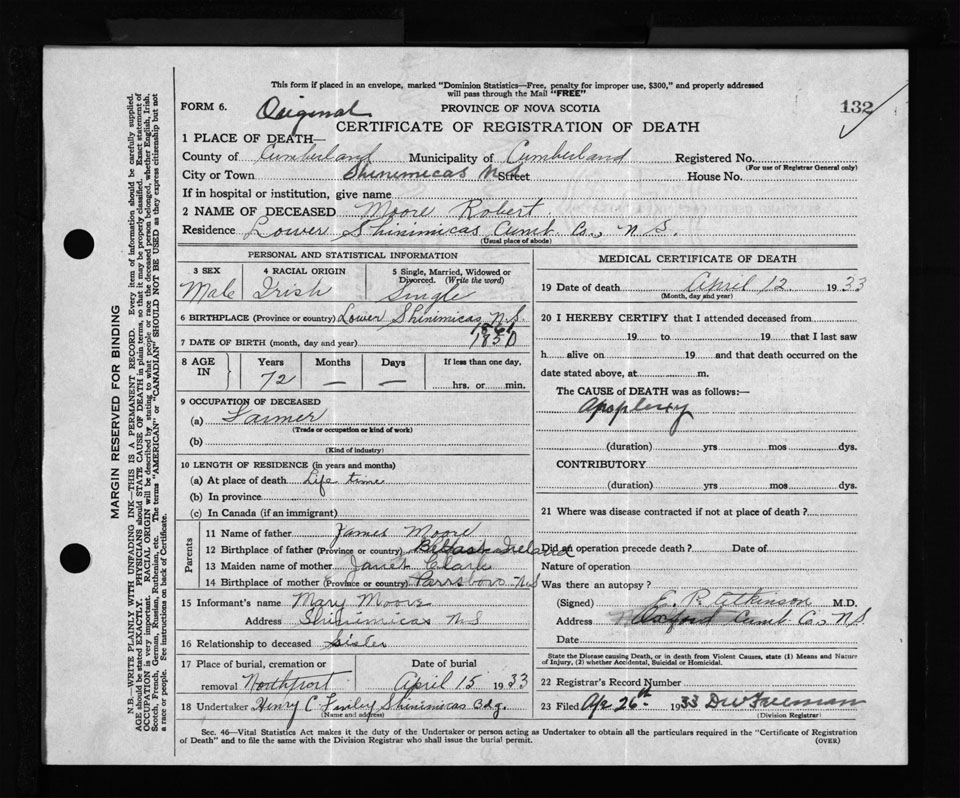 This form if placed in an envelope, marked "Dominion Statistics—Free, penalty for improper use, $300," and properly addressed
will pass through the Mail "FREE"
FORM 6. Original PROVINCE OF NOVA SCOTIA 132
CERTIFICATE OF REGISTRATION OF DEATH
1 PLACE OF DEATH—
County of Cumberland Municipality of Cumberland Registered No.
(For use of Registrar General only)
City or Town Shinimicas N.S. Street House No.
If in hospital or institution, give name
2 NAME OF DECEASED Moore Robert
Residence Lower Shinimicas Cumb. Co., N.S.
(Usual place of abode)
PERSONAL AND STATISTICAL INFORMATION
3 SEX 4 RACIAL ORIGIN 5 Single, Married, Widowed or
Divorced. (Write the word)
Male Irish Single
6 BIRTHPLACE (Province or country) Lower Shinimicas N.S.
1861
7 DATE OF BIRTH (month, day and year) 1850
8 AGE IN Years Months Days If less than one day,
72 — — hrs. or min.
9 OCCUPATION OF DECEASED
(a) Farmer
(Trade or occupation or kind of work)
(b)
(Kind of industry)
10 LENGTH OF RESIDENCE (in years and months)
(a) At place of death Life time
(b) In province
(c) In Canada (if an immigrant)
Parents
11 Name of father James Moore
12 Birthplace of father (Province or country) Belfast Ireland
13 Maiden name of mother Janet Clark
14 Birthplace of mother (Province or country) Parrsboro N.S
15 Informant's name Mary Moore
Address Shinimicas N.S
16 Relationship to deceased Sister
17 Place of burial, cremation or Date of burial
removal Northport April 15 1933
18 Undertaker Henry C. Finley Shinimicas Bdg.
(Name and address)
MEDICAL CERTIFICATE OF DEATH
19 Date of death April 12 1933
(Month, day and year)
20 I HEREBY CERTIFY that I attended deceased from
19 to 19 that I last saw
h alive on 19 and that death occurred on the
date stated above, at m.
The CAUSE OF DEATH was as follows:—
Apoplexy
(duration) yrs mos dys.
CONTRIBUTORY
(duration) yrs mos dys.
21 Where was disease contracted if not at place of death?
Did an operation precede death? Date of
Nature of operation
Was there an autopsy?
(Signed) E. R. Atkinson M.D.
Address Oxford Cumb. Co., N.S.
Date
State the Disease causing Death, or in death from Violent Causes, state (1) Means and Nature
of Injury, (2) whether Accidental, Suicidal or Homicidal.
22 Registrar's Record Number
23 Filed Apr 26th 1933 D W Freeman
(Division Registrar)
Sec. 46—Vital Statistics Act makes it the duty of the Undertaker or person acting as Undertaker to obtain all the particulars required in the "Certificate of Registration
of Death" and to file the same with the Division Registrar who shall issue the burial permit. (OVER)
MARGIN RESERVED FOR BINDING
N.B.—WRITE PLAINLY WITH UNFADING INK—THIS IS A PERMANENT RECORD. Every item of information should be carefully supplied.
AGE should be stated EXACTLY. PHYSICIANS should STATE CAUSE OF DEATH in plain terms, so that it may be properly classified. Exact statement of
OCCUPATION is very important. RACIAL ORIGIN will be described by stating to what people or race the deceased person belonged, whether English, Irish,
Scotch, French, German, Russian, Ruthenian, etc. The terms "AMERICAN" or "CANADIAN" SHOULD NOT BE USED as they express citizenship but not
a race or people. See instructions on back of Certificate.